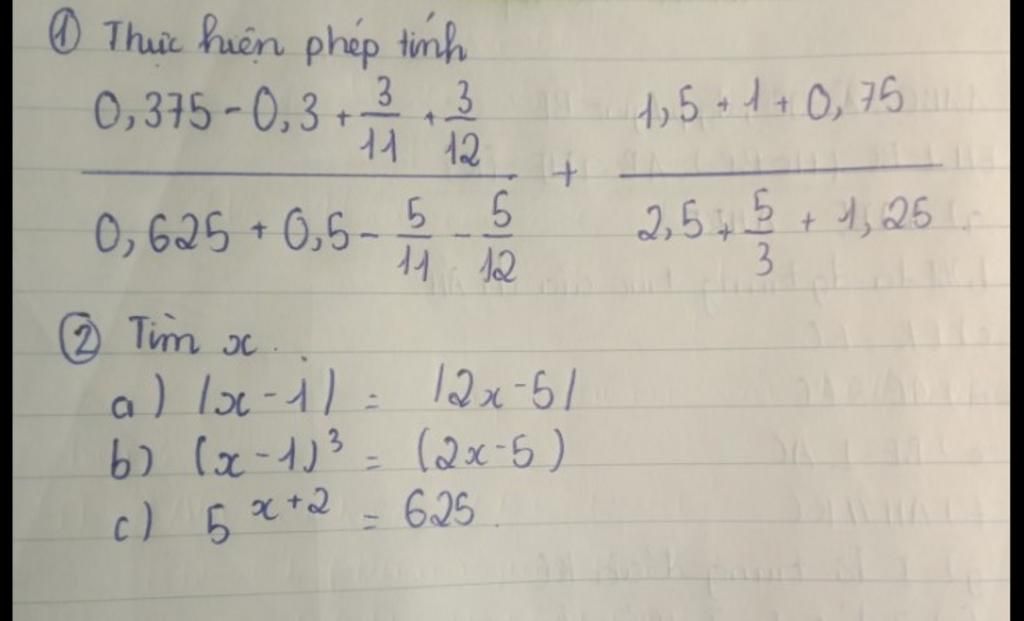 ① Thực hiện phép tính
0,375 - 0,3 + 3/11 + 3/12 + 1,5 + 1 + 0,75
0,625 + 0,5 - 5/11 - 5/12 2,5 + 5/3 + 1,25
② Tìm x.
a) |x - 1| = |2x - 5|
b) (x - 1)³ = (2x - 5)
c) 5^(x+2) = 625